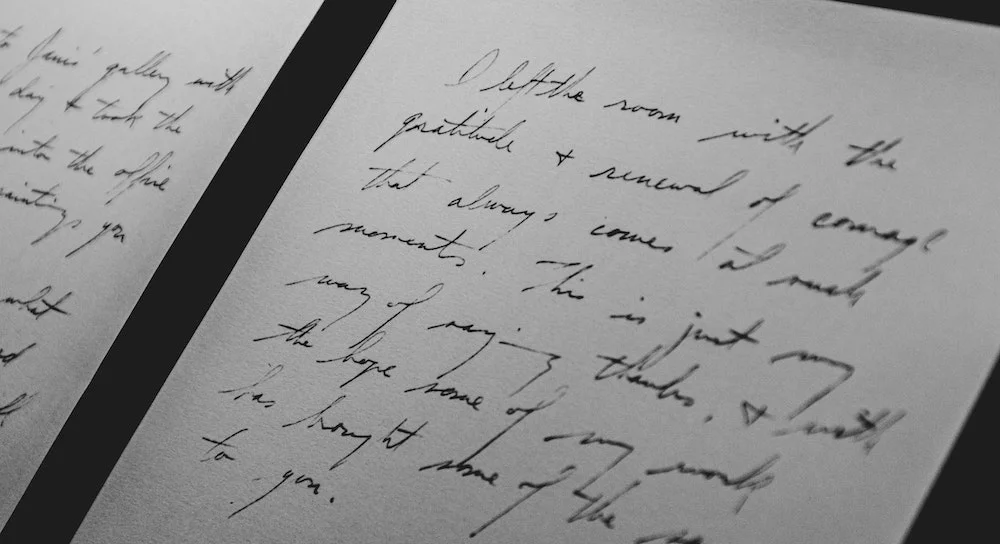 to Jenis' gallery with
day & took the
into the office
paintings you
what
I left the room with the
gratitude & renewal of courage
that always comes at such
moments. This is just my
way of saying thanks, & with
the hope some of my work
has brought some of the
to you.